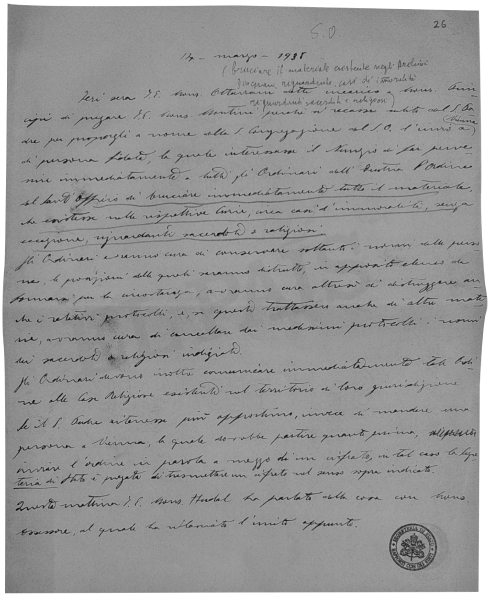 26
S.O
14 - marzo - 1938
(bruciare il materiale esistente negli Archivi
riguardante casi di immoralità
riguardanti sacerdoti e religiosi)
Ieri sera S.E. Mons. Ottaviani dette incarico a Mons.
di pregare S.E. Mons. Montini perchè si recasse subito dal S. Pa-
dre per proporgli a nome della S. Congregazione del S.O. l'invio a Vienna
di persona fidata, la quale interessasse il Nunzio di far perve-
nire immediatamente a tutti gli Ordinari dell'Austria l'ordine
del Sant'Offizio di bruciare immediatamente tutto il materiale,
che esistesse nelle rispettive Curie, circa casi d'immoralità, senza
eccezione, riguardanti sacerdoti o religiosi.
Gli Ordinari avranno cura di conservare soltanto i nomi delle perso-
ne, le posizioni delle quali saranno distrutte, in apposito elenco da
formarsi per la circostanza, avranno cura altresì di distruggere an-
che i relativi protocolli, e, se questi trattassero anche di altre mate-
rie, avranno cura di cancellare dai medesimi protocolli i nomi
dei sacerdoti o religiosi indiziati.
Gli Ordinari devono inoltre comunicare immediatamente tale Ordi-
ne alle Case Religiose esistenti nel territorio di loro giurisdizione
Se il S. Padre ritenesse più opportuno, invece di mandare una
persona a Vienna, la quale dovrebbe partire quanto prima,
inviare l'ordine in parola a mezzo di un cifrato, in tal caso la Segre-
teria di Stato è pregata di trasmettere un cifrato nel senso sopra indicato.
Questa mattina S.E. Mons. Hudal ha parlato della cosa con Mons.
Assessore, al quale ha rilasciato l'unito appunto.